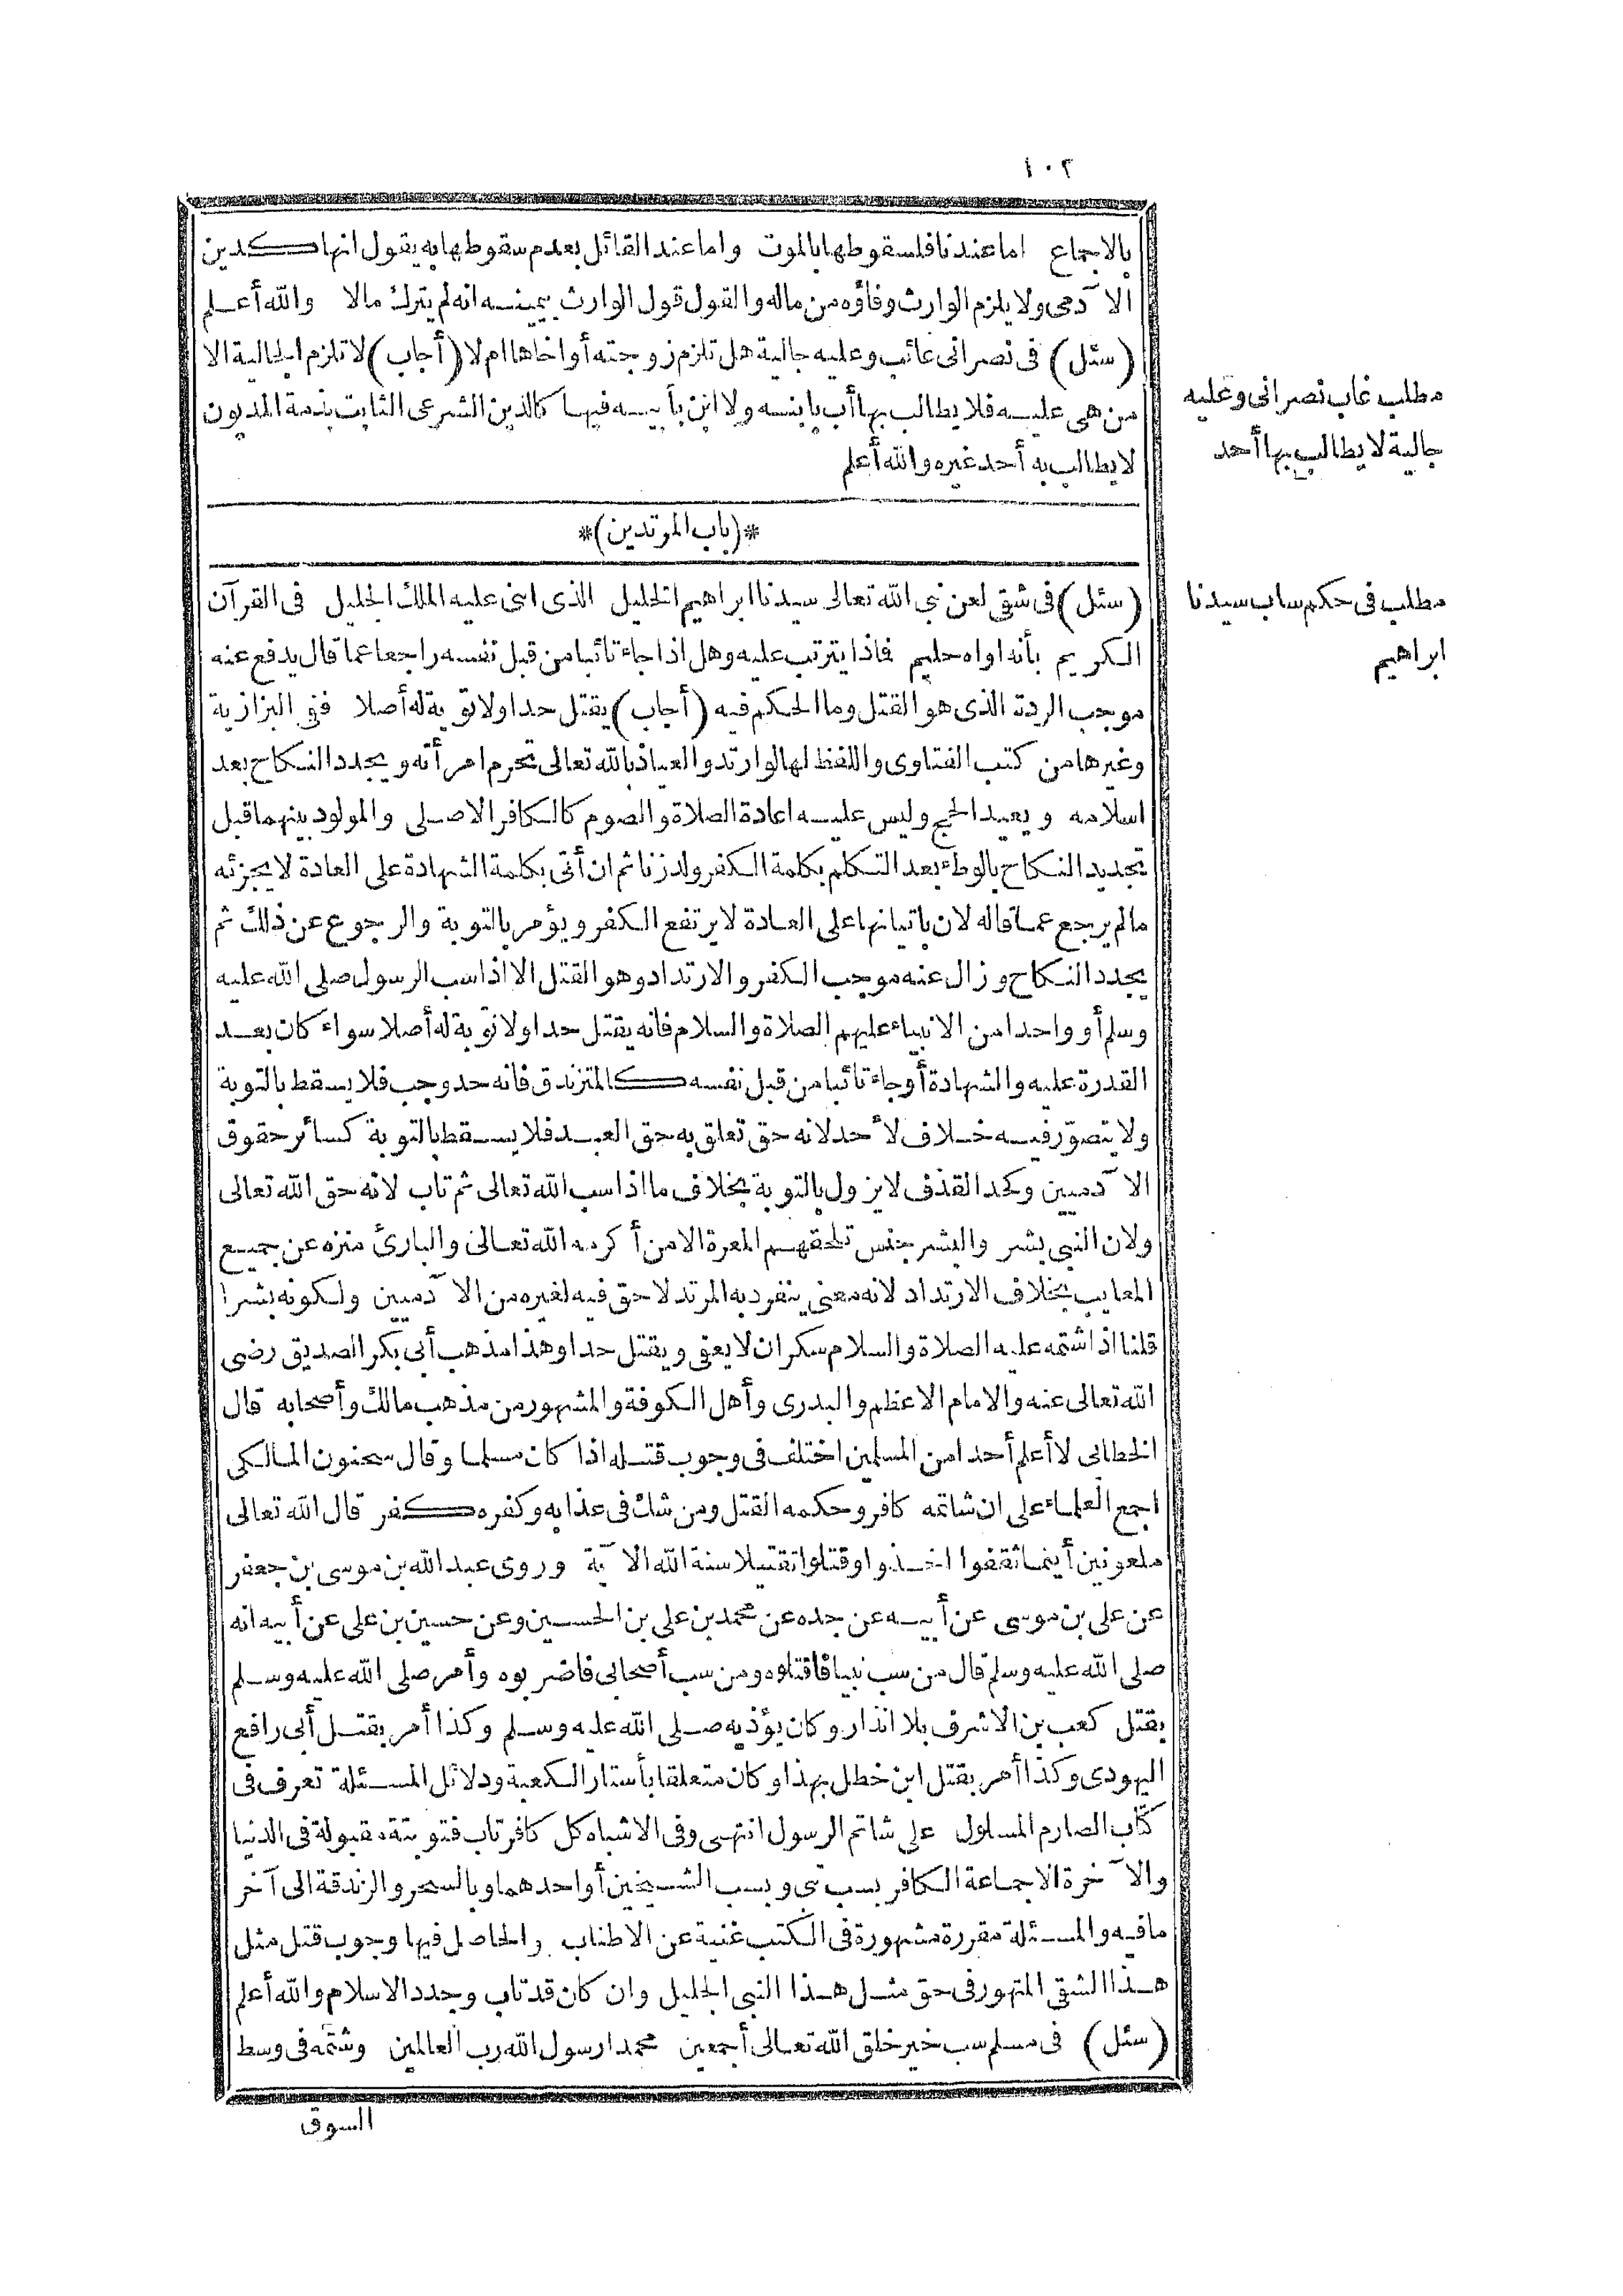 ١٠٢
بالاجماع اما عندنا فلسقوطها بالموت واما عند القائل بعدم سقوطها به يقول انها كدين
الآدمى ولا يلزم الوارث وفاؤه من ماله والقول قول الوارث بيمينه انه لم يترك مالا والله أعلم
(سئل) فى نصرانى غائب وعليه جالية هل تلزم زوجته أو اخاها ام لا (أجاب) لا تلزم الجالية الا
من هى عليه فلا يطالب بها أب بابنه ولا ابن بأبيه فيها كالدين الشرعى الثابت بذمة المديون
لا يطالب به أحد غيره والله أعلم
مطلب غاب نصرانى وعليه
جالية لا يطالب بها أحد
*(باب المرتدين)*
(سئل) فى شقى لعن نبى الله تعالى سيدنا ابراهيم الخليل الذى اثنى عليه الملك الجليل فى القرآن
الكريم بأنه اواه حليم فاذا يترتب عليه وهل اذا جاء تائبا من قبل نفسه راجعا عما قال يدفع عنه
موجب الردة الذى هو القتل وما الحكم فيه (أجاب) يقتل حدا ولا توبة له أصلا ففى البزازية
وغيرها من كتب الفتاوى واللفظ لها لو ارتد والعياذ بالله تعالى تحرم امرأته ويجدد النكاح بعد
اسلامه ويعيد الحج وليس عليه اعادة الصلاة والصوم كالكافر الاصلى والمولود بينهما قبل
تجديد النكاح بالوطء بعد التكلم بكلمة الكفر ولد زنا ثم ان أتى بكلمة الشهادة على العادة لا يجزئه
مالم يرجع عما قاله لان باتيانها على العادة لا يرتفع الكفر ويؤمر بالتوبة والرجوع عن ذلك ثم
يجدد النكاح وزال عنه موجب الكفر والارتداد وهو القتل الا اذا سب الرسول صلى الله عليه
وسلم أو واحدا من الانبياء عليهم الصلاة والسلام فانه يقتل حدا ولا توبة له أصلا سواء كان بعد
القدرة عليه والشهادة أو جاء تائبا من قبل نفسه كالمتزندق فانه حد وجب فلا يسقط بالتوبة
ولا يتصوّر فيه خلاف لأحد لانه حق تعلق به حق العبد فلا يسقط بالتوبة كسائر حقوق
الآدميين وكحد القذف لا يزول بالتوبة بخلاف ما اذا سب الله تعالى ثم تاب لانه حق الله تعالى
ولان النبى بشر والبشر جنس تلحقهم المعرة الا من أكرمه الله تعالى والبارئ منزه عن جميع
المعايب بخلاف الارتداد لانه معنى ينفرد به المرتد لا حق فيه لغيره من الآدميين ولكونه بشرا
قلنا اذا شتمه عليه الصلاة والسلام سكران لا يعفى ويقتل حدا وهذا مذهب أبى بكر الصديق رضى
الله تعالى عنه والامام الاعظم والبدرى وأهل الكوفة والمشهور من مذهب مالك وأصحابه قال
الخطابى لا أعلم أحدا من المسلمين اختلف فى وجوب قتله اذا كان مسلما وقال سحنون المالكى
اجمع العلماء على ان شاتمه كافر وحكمه القتل ومن شك فى عذابه وكفره كفر قال الله تعالى
ملعونين أينما ثقفوا اخذوا وقتلوا تقتيلا سنة الله الآية وروى عبد الله بن موسى بن جعفر
عن على بن موسى عن أبيه عن جده عن محمد بن على بن الحسين وعن حسين بن على عن أبيه انه
صلى الله عليه وسلم قال من سب نبيا فاقتلوه ومن سب أصحابى فاضربوه وأمر صلى الله عليه وسلم
بقتل كعب بن الاشرف بلا انذار وكان يؤذيه صلى الله عليه وسلم وكذا أمر بقتل أبى رافع
اليهودى وكذا أمر بقتل ابن خطل بهذا وكان متعلقا بأستار الكعبة ودلائل المسئلة تعرف فى
كتاب الصارم المسلول على شاتم الرسول انتهى وفى الاشباه كل كافر تاب فتوبته مقبولة فى الدنيا
والآخرة الا جماعة الكافر بسب نبى وبسب الشيخين أو احدهما وبالسحر والزندقة الى آخر
ما فيه والمسئلة مقررة مشهورة فى الكتب غنية عن الاطناب والحاصل فيها وجوب قتل مثل
هذا الشقى المتهور فى حق مثل هذا النبى الجليل وان كان قد تاب وجدد الاسلام والله أعلم
(سئل) فى مسلم سب خير خلق الله تعالى أجمعين محمدا رسول الله رب العالمين وشتمه فى وسط
مطلب فى حكم ساب سيدنا
ابراهيم
السوق